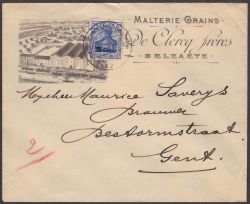 MALTERIE-GRAINS
De Clercq frères
BELZAETE
Mijnheer Maurice Saverys
Brouwer
Bestormstraat,
Gent.
2